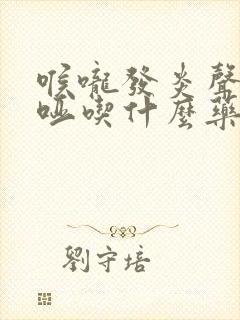 喉嚨發炎聲
啞喫什麼藥
劉守培